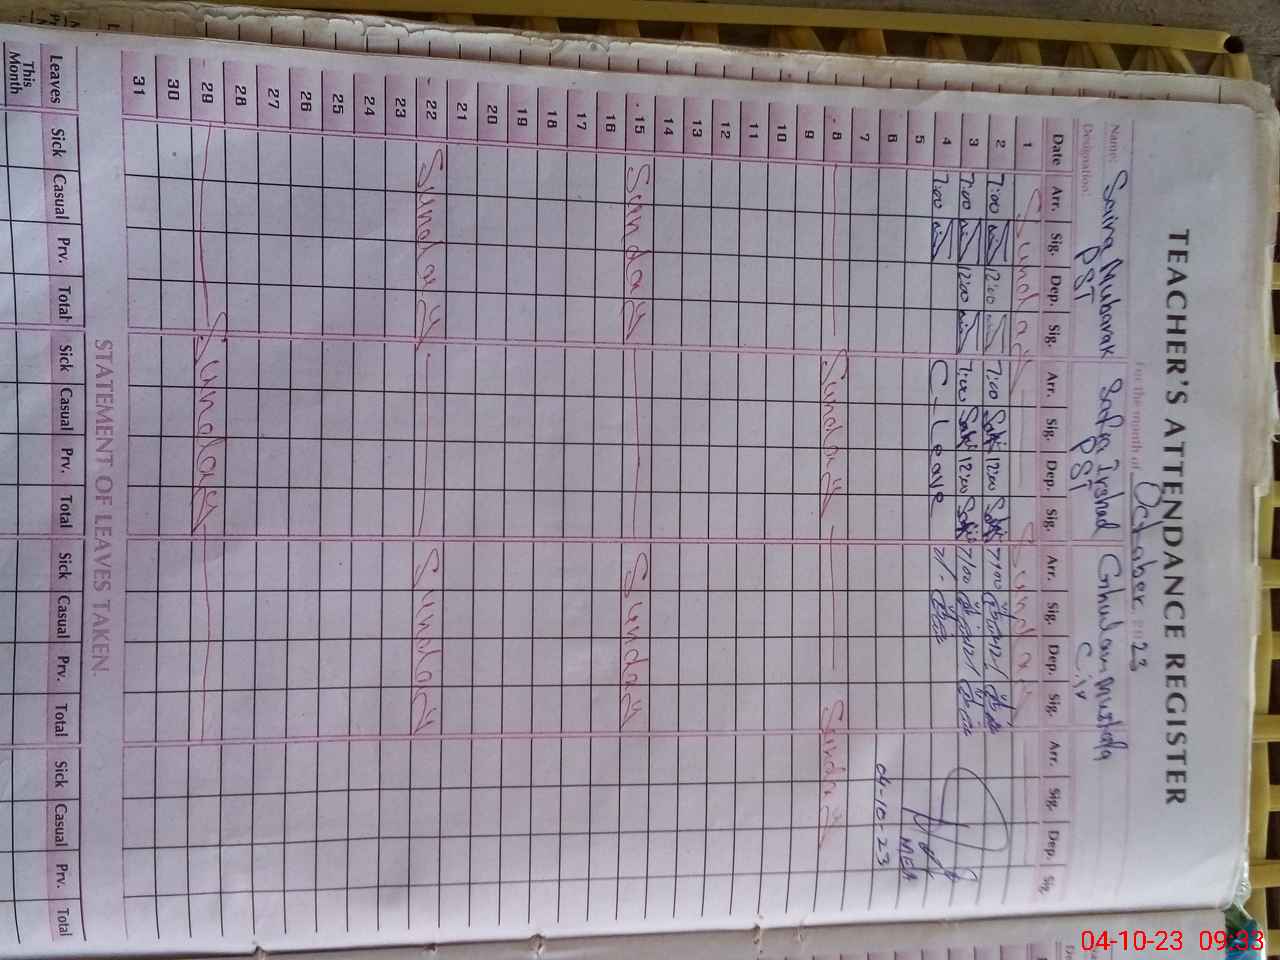 TEACHER'S ATTENDANCE REGISTER
For the month of October 2023
Name: Saira Mubarak Safia Irshad Ghulam Mustafa
Designation: PST PST C.iv
Date Arr. Sig. Dep. Sig. Arr. Sig. Dep. Sig. Arr. Sig. Dep. Sig. Arr. Sig. Dep. Sig.
1 Sunday Sunday
2 7:00 12:00 7:00 12:00 7/00
3 7:00 12:00 7:00 12:00 7/00
4 7:00 C-Leave
5 MEA
6 04-10-23
7
8 Sunday Sunday
9
10
11
12
13
14
15 Sunday Sunday
16
17
18
19
20
21
22 Sunday Sunday
23
24
25
26
27
28
29 Sunday
30
31
STATEMENT OF LEAVES TAKEN.
Leaves Sick Casual Prv. Total Sick Casual Prv. Total Sick Casual Prv. Total Sick Casual Prv. Total
This Month
04-10-23 09:33